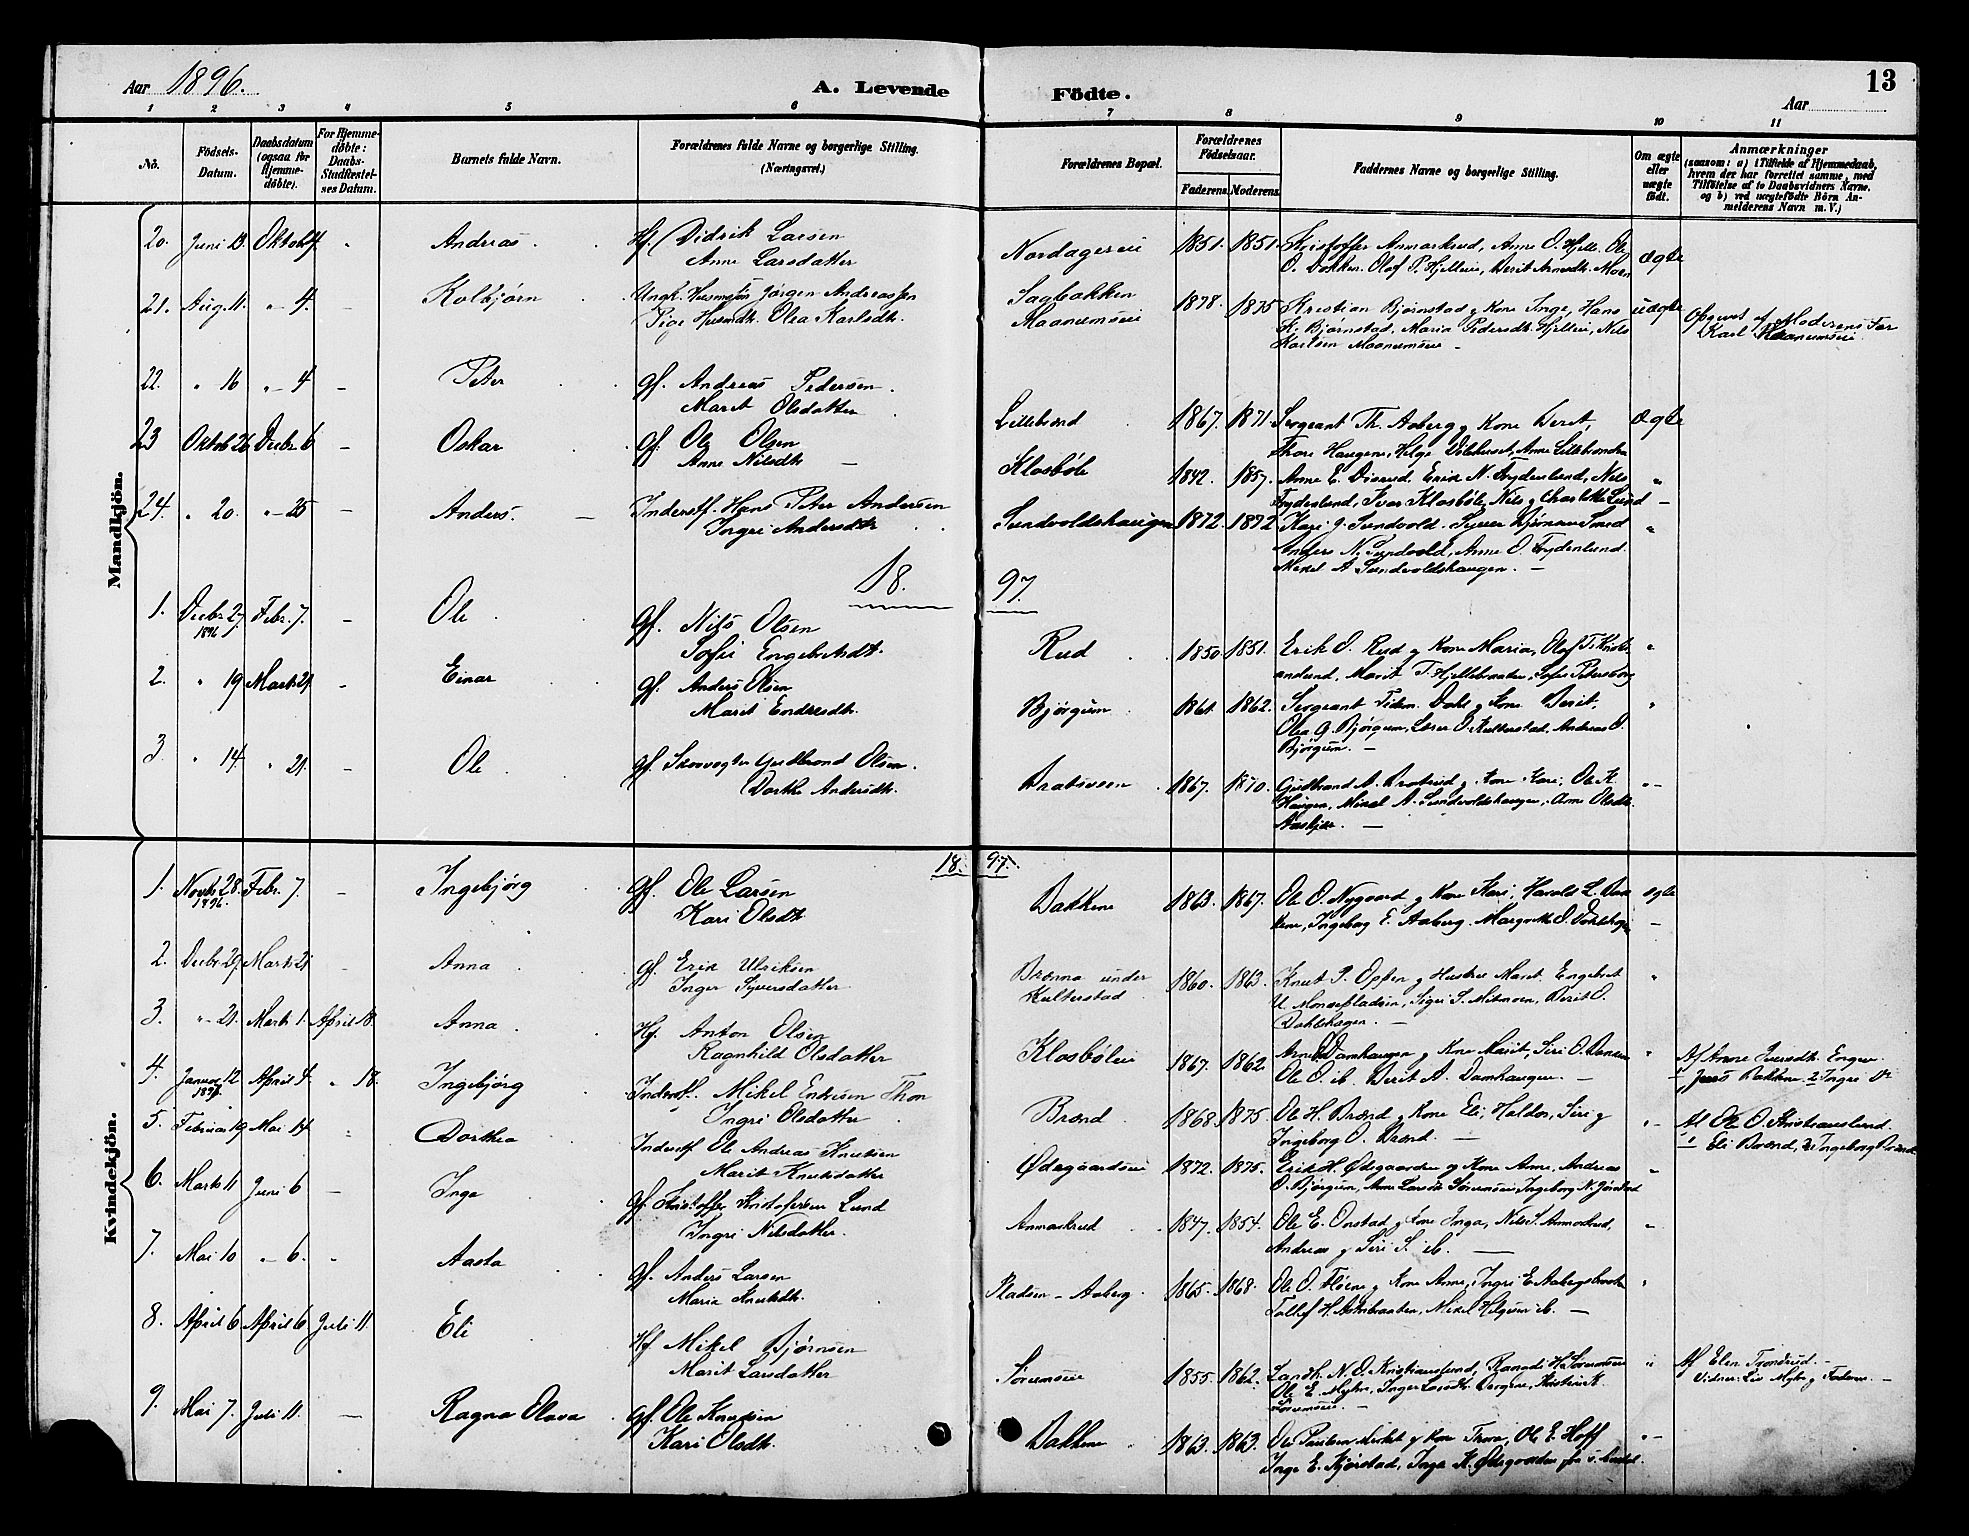 Aar 1896.
A. Levende Födte.
13
Aar
1 2 3 4 5 6 7 8 9 10 11
Nö.
Födsels-Datum.
Daabsdatum (ogsaa for Hjemmedöbte).
For Hjemmedöbte: Daabs-Stadfæstelses Datum.
Barnets fulde Navn.
Forældrenes fulde Navne og borgerlige Stilling. (Næringsvei.)
Forældrenes Bopæl.
Forældrenes Födselsaar.
Faderens. Moderens.
Faddernes Navne og borgerlige Stilling.
Om ægte eller uægte födt.
Anmærkninger
(saasom: a) i Tilfælde af Hjemmedaab,
hvem der har forrettet samme, med
Tilföielse af to Daabsvidners Navne.
og b) ved uægtefödte Börn An-
melderens Navn m. V.)
Mandkjön.
20. Juni 13. Oktob 4 Andreas. Hf. Didrik Larsen
Anne Larsdatter
Nordagereie 1851. 1851. Kristoffer Anmarkrud, Anne O. Hjelle. Ole
O. Dokken. Olof P. Hjelleie, Berit Arnesdt. Moen
ægte
21. Aug. 11. " 4. – Kolbjørn Ungk. Husmssøn Jørgen Andreassen
Pige Husmdt. Olea Karlsdt.
Sagbakken
Maanumseie
1878. 1875 Kristian Bjørnstad og Kone Inge, Hans
K. Bjørnstad, Maria Pedersdt. Hjelleie, Nils
Karlsen Maanumseie –
uægte
Opgivet af Moderens Far
Karl Maanumseie.
22. " 16 " 4 – Peter Gf. Andreas Pedersen.
Maret Olsdatter
Lillebrænd 1867. 1871. Sergeant Th. Aaberg og Kone Berit,
Thore Haugene, Helge
ægte
23 Oktob 26 Decbr 6 – Oskar Gf. Ole Olsen
Anne Nilsdt. –
Klosbøle 1842. 1857. Anne E. Disrud, Erik N. Frydenlund, Nils
Frydenlund, Ivar Klosbøle, Nils og Charlotte Lund –
24. " 20. " 25 – Anders. – Inderst. Hans Peter Andersen
Ingri Andersdt.
Sundvoldshaugen 1872. 1872 Kari G. Sundvold. Syver Bjørnsen Smed
Anders N. Sundvold, Anne O. Frydenlund.
Mikel A. Sundvoldshaugen. –
18. 97.
1. Decbr 27. 1896 Febr. 7. – Ole. Gf. Nils Olsen
Sofie Engebretdt.
Rud 1850. 1851. Erik O. Rud og Kone Maria, Olof T.
Marit T. Hjellebraaten, Sofie Petersborg
2. " 19 Marts 21. – Einar Gf. Anders Olsen
Marit Endresdt.
Bjørgum 1861. 1862. Sergeant Tidem. Dahl og Kone Berit,
Olea G. Bjørgum, Lærer O. Kulterstad, Andreas O.
Bjørgum. –
3. " 14. " 21. – Ole Gf. Skovvogter Gudbrand Olsen.
Dorthe Andersdt.
Brabsveen 1867. 1870. Gudbrand A. Brabrud og Kone Kari, Ole K.
Haugen, Mikel A. Sundvoldshaugen, Arne Olsdt.
–
Kvindekjön.
18. 97.
1. Novbr 28. 1896. Febr. 7. – Ingebjørg Gf. Ole Larsen
Kari Olsdt.
Bakkene 1863. 1867. Ole O. Nygaard og Kone Kari, Harald L. Bak
kene, Ingeborg E. Aaberg. Margrethe O. Dahlshagen
ægte –
2. Decbr 29. Marts 21 – Anna Gf. Erik Ulriksen
Inger Syversdatter
Brænna under
Kulterstad
1860. 1863. Knut P. Opsen og Hustru Marit. Engebret
U. Monsepladsen, Sigri S. Mitmoen, Berit O.
Dahlshagen. –
3. " 21. Marts 1. April 18. Anna Hf. Anton Olsen
Ragnhild Olsdatter
Klosbøleie 1867. 1862. Arne Damhaugen og Kone Marit, Siri O. Bakken
Ole O. ib. Berit A. Damhaugen. –
Af Anne Iversdt. Engen.
Jens Bakken 2 Ingri
4. Januar 12 1897. April 4. " 18. Ingebjørg Inderst. Mikel Endresen Thon
Ingri Olsdatter
Brænd 1868. 1875 Ole H. Brænd og Kone Eli, Haldor, Siri og
Ingeborg O. Brænd. –
Af Ole O. Kristianslund.
Eli Brænd, 2) Ingeborg Brænd
5. Februar 19 Mai 14 Dorthea Inderst. Ole Andreas Knutsen
Marit Knutsdatter
Ødegaardseie 1872. 1875. Erik H. Ødegaarden og Kone Anne, Andreas
O. Bjørgum, Anne Larsdt. Sørumseie Ingeborg N. Jørstad
6. Marts 11 Juni 6 – Inga Gf. Kristoffer Kristofersen Lund
Ingri Nilsdatter.
Anmarkrud 1847. 1854. Ole E. Onstad og Kone Inga, Nils S. Anmarkrud,
Andreas og Siri S. ib. –
7. Mai 10 " 6. – Aasta Gf. Anders Larsen
Maria Knutsdt.
Pladsen – Aaberg. 1865. 1868. Ole O. Fløene og Kone Anne, Ingri E. Aabergsbraaten
Tollef H. Asbraaten, Mikel Helgum ib. –
8. April 6 April 6 Juli 11. Eli Hf Mikel Bjørnsen
Marit Larsdatter
Sørumseie 1855. 1862. Landh. N. O. Kristianslund, Ranadi H. Sørumseie
Ole E. Myhr, Inger Larsdt. Bergene, Kristian K.
Sørumseie. –
Af Elen Trondrud. –
Vidner: Liv Myhr og Faderen. –
9. Mai 7. Juli 11. – Ragna Olava Gf. Ole Knutsen
Kari Olsdt.
Bakkene 1863. 1863. Ole Paulsen og Kone Thora, Ole E. Hoff
Inge E. Kjørstad, Inga K. Ødegaarden